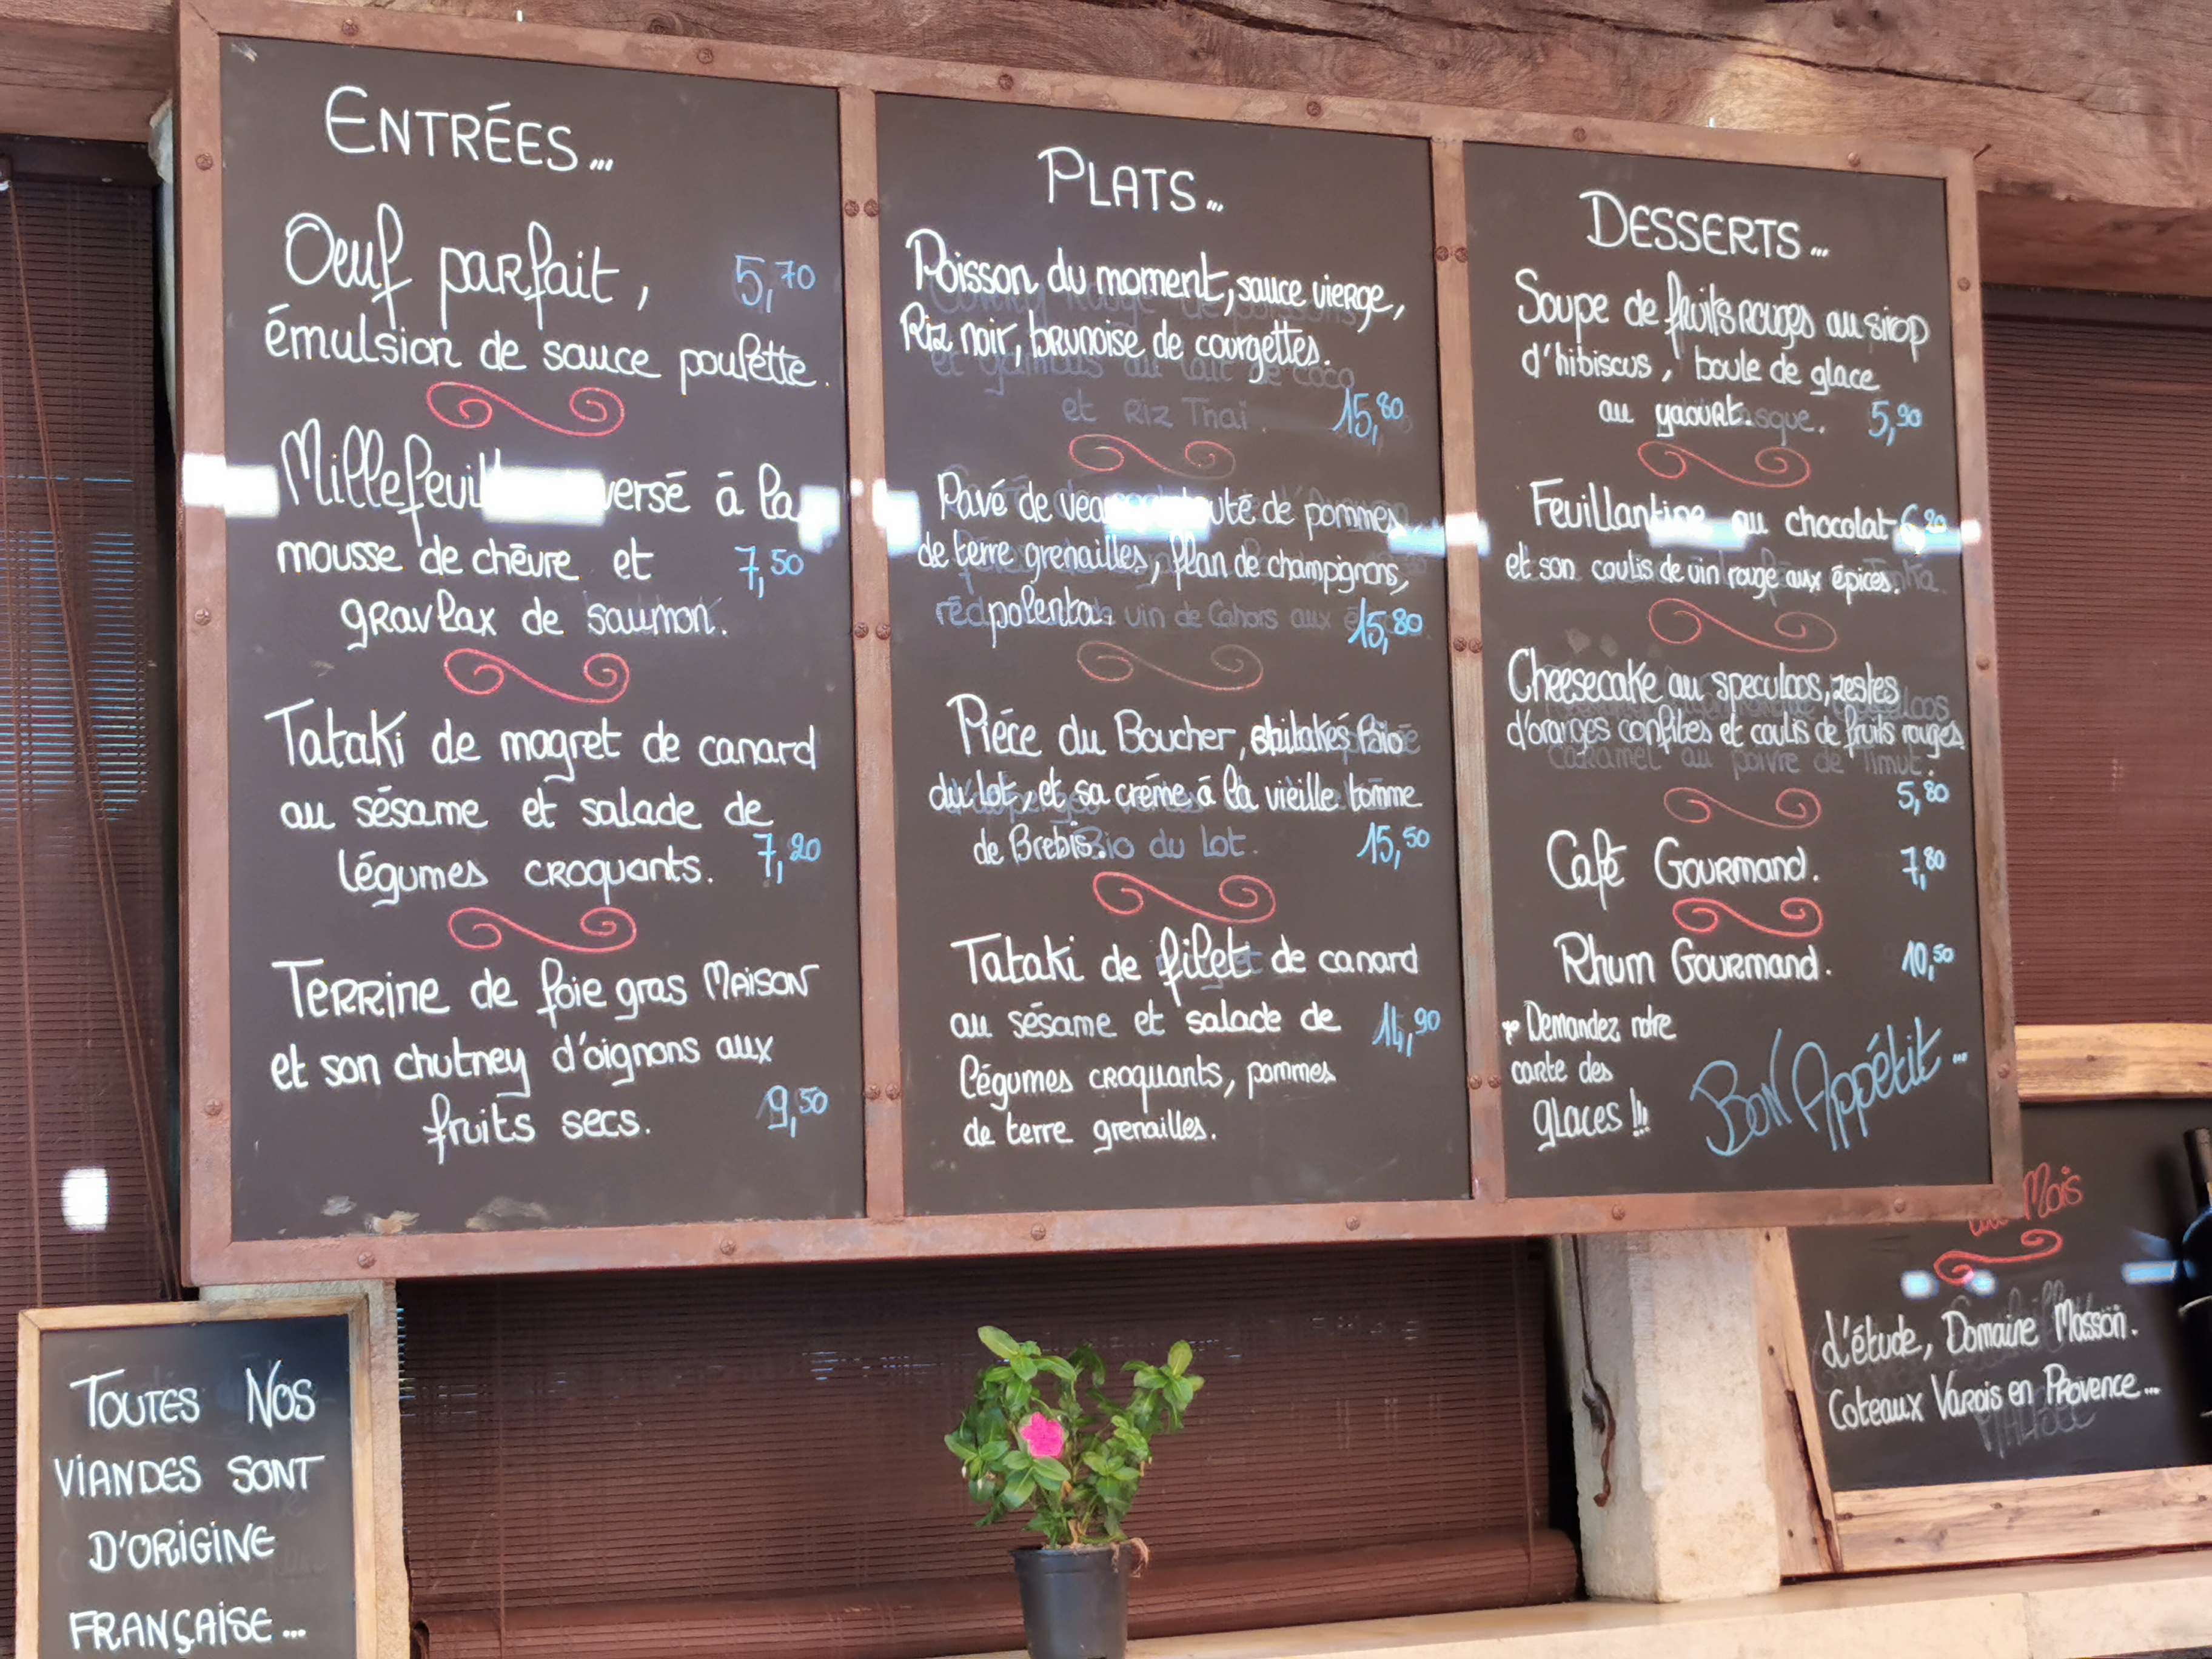 ENTRÉES...
Oeuf parfait, 5,70
émulsion de sauce poulette.
versé à la
mousse de chèvre et 7,50
gravlax de saumon.
Tataki de magret de canard
au sésame et salade de
légumes croquants. 7,20
Terrine de foie gras MAISON
et son chutney d'oignons aux
fruits secs. 9,50
PLATS...
Poisson du moment, sauce vierge,
Riz noir, brunoise de courgettes.
et Riz Thaï. 15,80
Pavé de de pommes
de terre grenailles, flan de champignons,
polenta. vin de Cahors aux 15,80
Piéce du Boucher, shitakés Bio
du Lot, et sa créme à la vieille tomme
de Brebis. Bio du Lot. 15,50
Tataki de filet de canard
au sésame et salade de 14,90
légumes croquants, pommes
de terre grenailles.
DESSERTS...
Soupe de fruits rouges au sirop
d'hibiscus, boule de glace
au yaourt. 5,90
Feuillantine au chocolat
et son coulis de vin rouge aux épices.
Cheesecake au speculoos, zestes
d'oranges confites et coulis de fruits rouges
caramel au poivre de Timut.
5,80
Café Gourmand. 7,80
Rhum Gourmand. 10,50
Demandez notre
carte des
glaces !!!
Bon Appétit...
TOUTES NOS
VIANDES SONT
D'ORIGINE
FRANÇAISE...
Mois
d'étude, Domaine Masson.
Coteaux Varois en Provence...